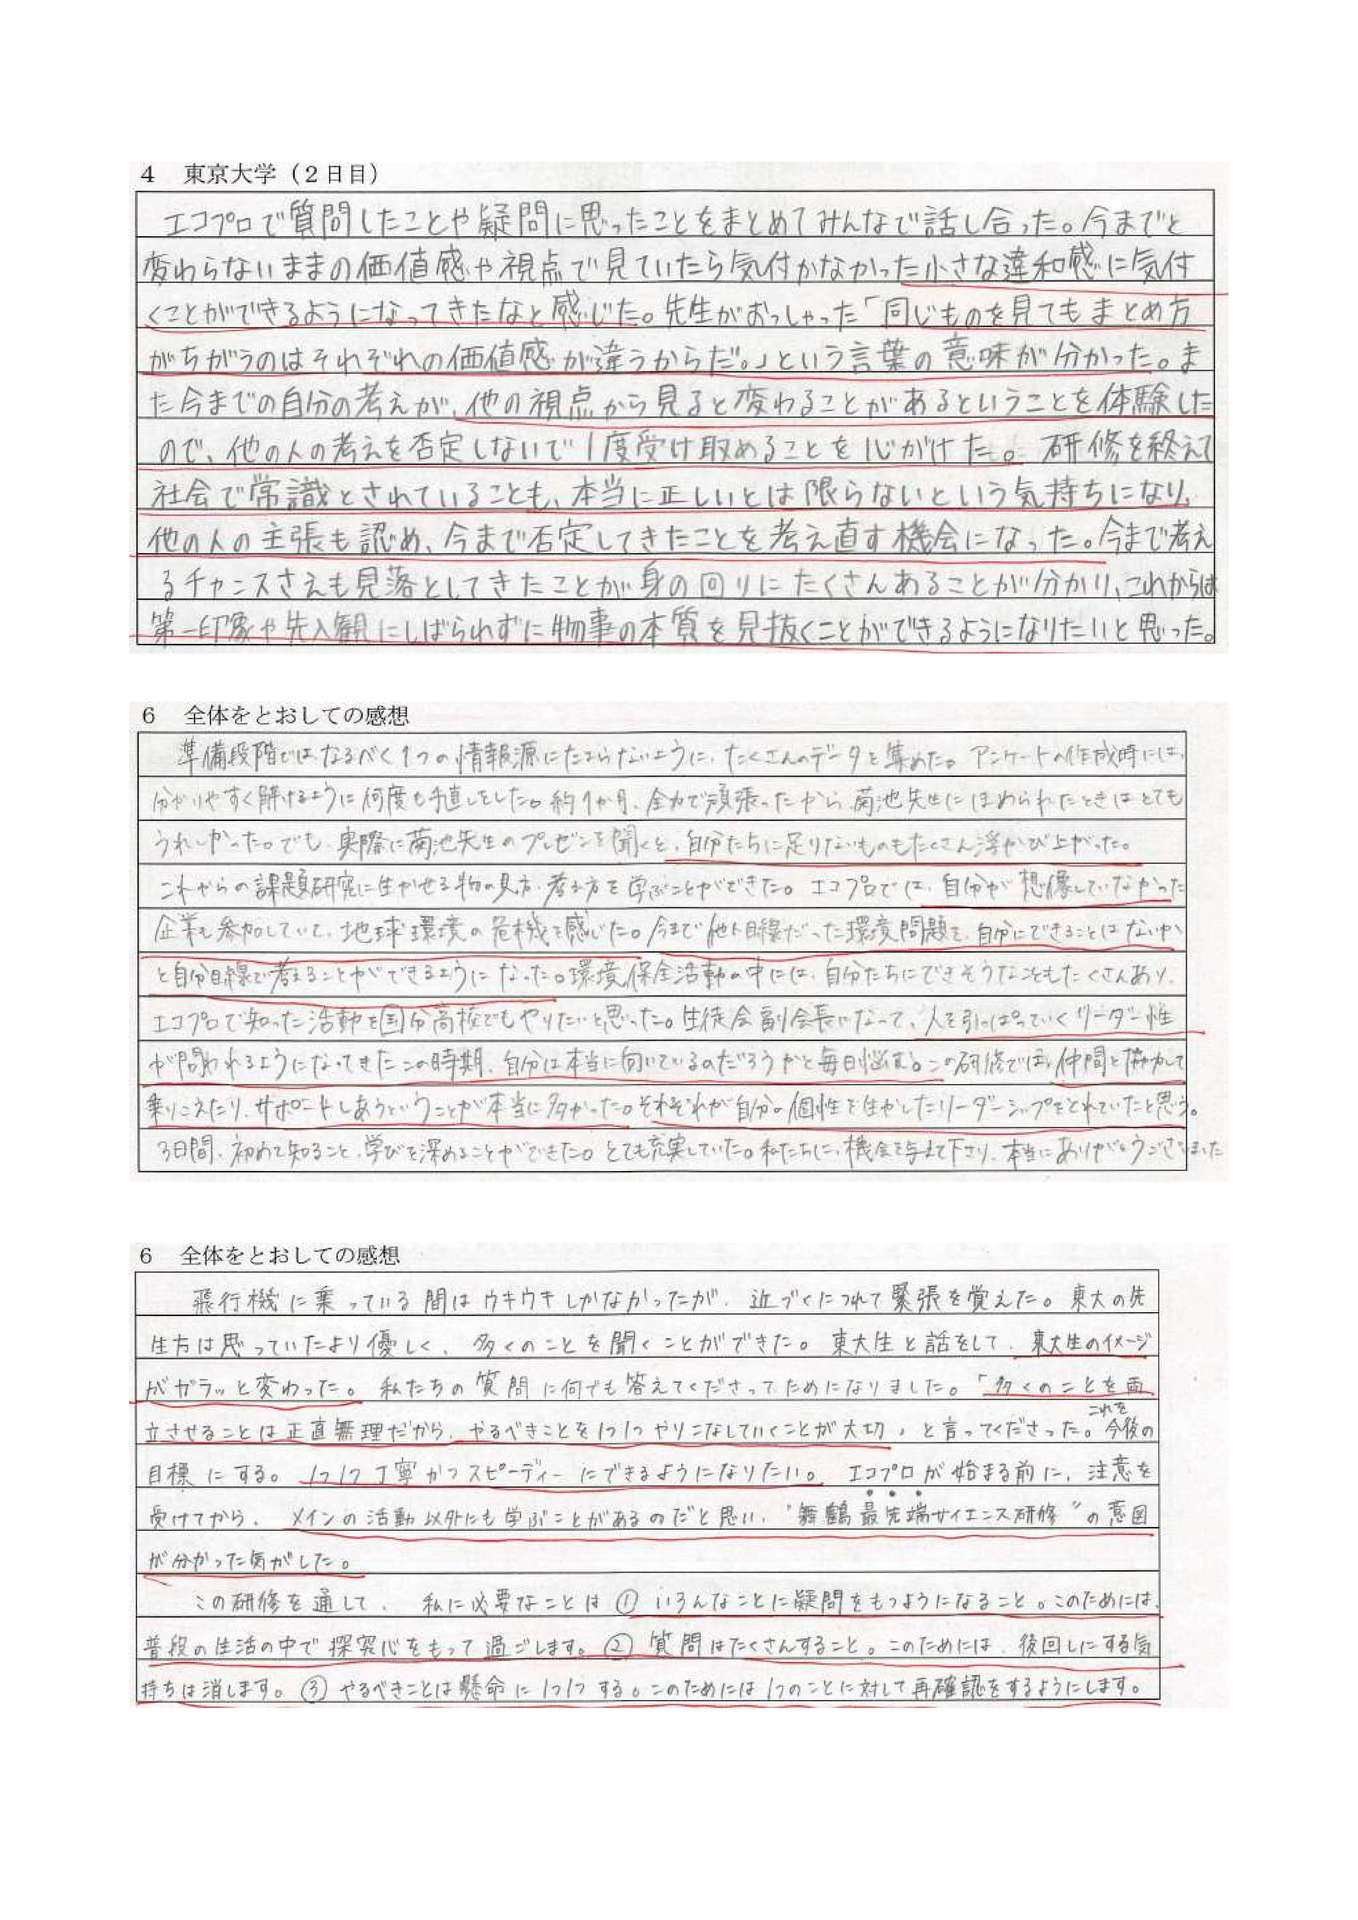 4 東京大学(2日目)
エコプロで質問したことや疑問に思ったことをまとめてみんなで話し合った。今までと
変わらないままの価値感や視点で見ていたら気付かなかった小さな違和感に気付
くことができるようになってきたなと感じた。先生がおっしゃった「同じものを見てもまとめ方
がちがうのはそれぞれの価値感が違うからだ。」という言葉の意味が分かった。ま
た今までの自分の考えが、他の視点から見ると変わることがあるということを体験した
ので、他の人の考えを否定しないで1度受け取めることを心がけた。研修を終えて
社会で常識とされていることも、本当に正しいとは限らないという気持ちになり、
他の人の主張も認め、今まで否定してきたことを考え直す機会になった。今まで考え
るチャンスさえも見落としてきたことが身の回りにたくさんあることが分かり、これからは
第一印象や先入観にしばられずに物事の本質を見抜くことができるようになりたいと思った。
6 全体をとおしての感想
準備段階では、なるべく1つの情報源にたよらないように、たくさんのデータを集めた。アンケートの作成時には、
分かりやすく解けるように何度も手直しをした。約1か月、全力で頑張ったから、菊池先生にほめられたときはとても
うれしかった。でも、実際に菊池先生のプレゼンを聞くと、自分たちに足りないものもたくさん浮かび上がった。
これからの課題研究に生かせる物の見方・考え方を学ぶことができた。エコプロでは、自分が想像していなかった
企業も参加していて、地球環境の危機を感じた。今まで他人目線だった環境問題を、自分にできることはないか
と自分目線で考えることができるようになった。環境保全活動の中には、自分たちにできそうなこともたくさんあり、
エコプロで知った活動を国分高校でもやりたいと思った。生徒会副会長になって、人を引っぱっていくリーダー性
が問われるようになってきたこの時期、自分は本当に向いているのだろうかと毎日悩む。この研修では、仲間と協力して
乗りこえたり、サポートしあうということが本当に多かった。それぞれが自分の個性を生かしたリーダーシップをとれていたと思う。
3日間、初めて知ること、学びを深めることができた。とても充実していた。私たちに、機会を与えて下さり、本当にありがとうございました
6 全体をとおしての感想
飛行機に乗っている間はウキウキしかなかったが、近づくにつれて緊張を覚えた。東大の先
生方は思っていたより優しく、多くのことを聞くことができた。東大生と話をして、東大生のイメージ
がガラッと変わった。私たちの質問に何でも答えてくださってためになりました。「多くのことを両
立させることは正直無理だから、やるべきことを1つ1つやりこなしていくことが大切」と言ってくださった。これを今後の
目標にする。1つ1つ丁寧かつスピーディーにできるようになりたい。エコプロが始まる前に、注意を
受けてから、メインの活動以外にも学ぶことがあるのだと思い、"舞鶴最先端サイエンス研修"の意図
が分かった気がした。
この研修を通して、私に必要なことは①いろんなことに疑問をもつようになること。このためには、
普段の生活の中で探究心をもって過ごします。②質問はたくさんすること。このためには、後回しにする気
持ちは消します。③やるべきことは懸命に1つ1つする。このためには1つのことに対して再確認をするようにします。